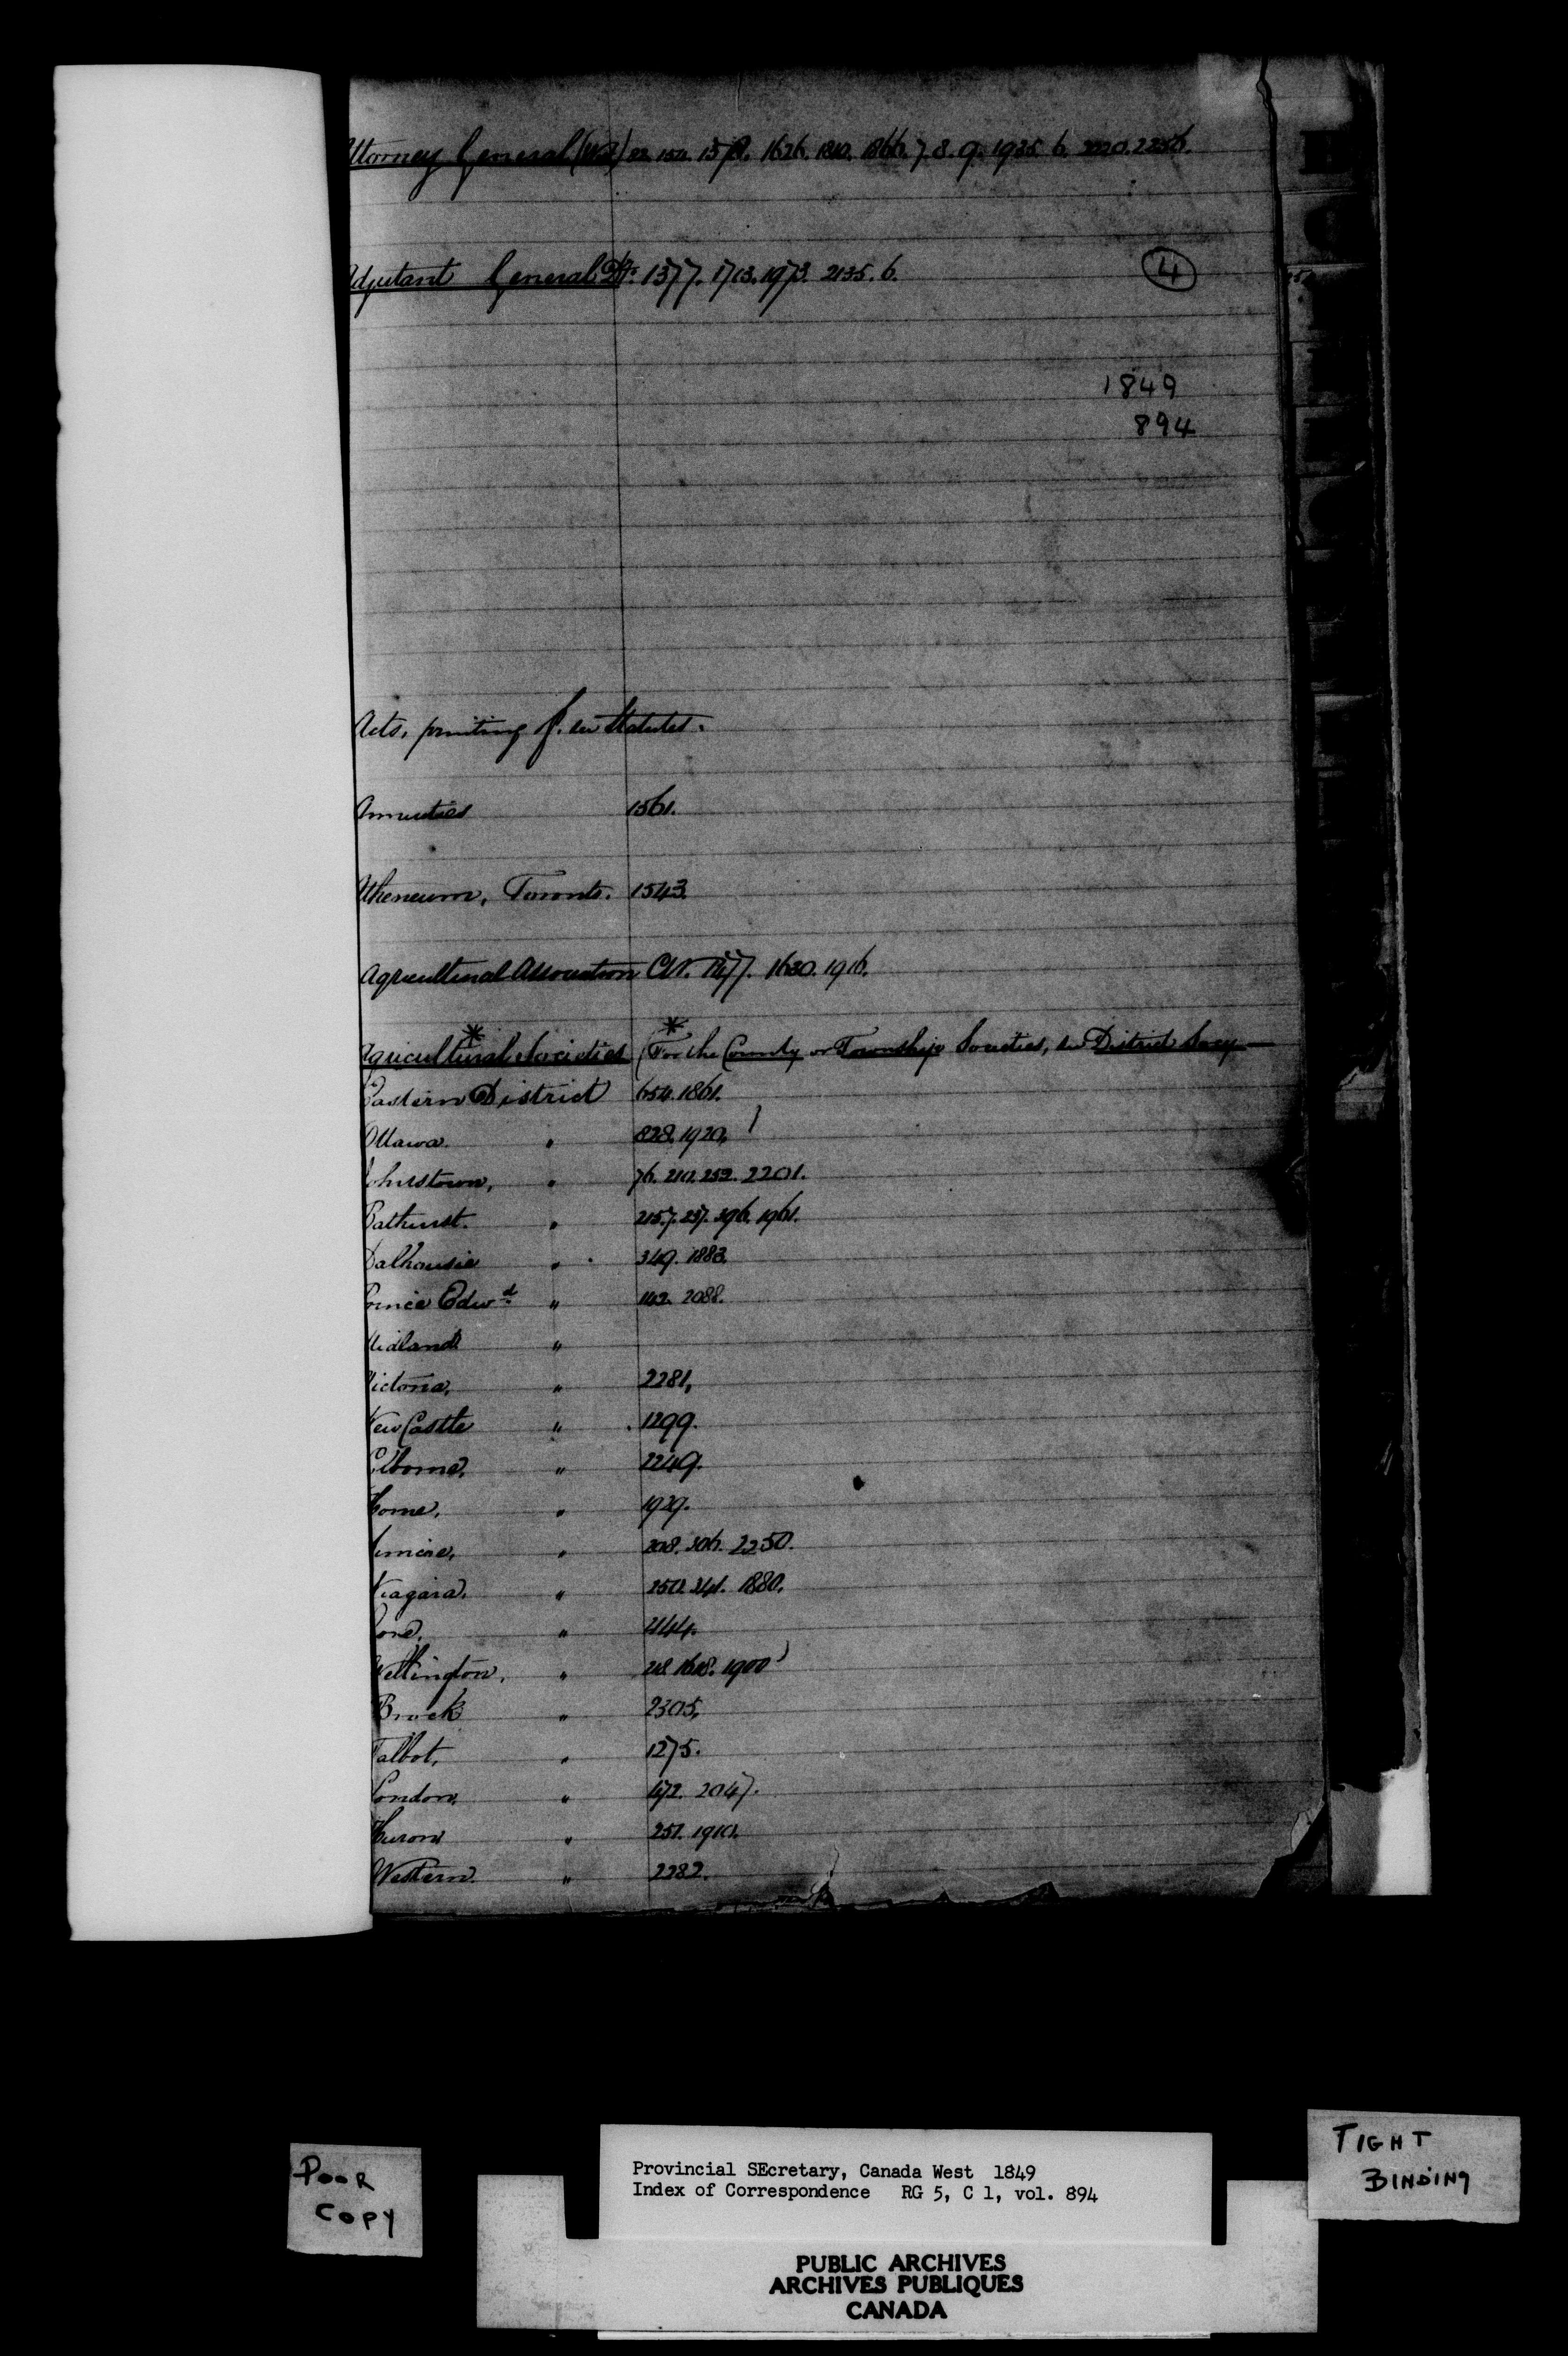 Attorney General (West) 22. 154. 1578. 1626. 1810. 1866. 7. 8. 9. 1935. 6. 2220. 2256.
Adjutant General 1377. 1713. 1973. 2135. 6.
4
1849
894
Acts, printing of. see Statutes.
Annuities 1561.
Atheneum, Toronto. 1543.
Agricultural Association CW. 1630. 1916.
* *
Agricultural Societies (For the County or Township Societies, see District Socy
Eastern District 654. 1861.
Ottawa. " 828. 1920,
Johnstown, " 76. 210. 252. 2201.
Bathurst. " 215.7. 237. 396. 1961.
Dalhousie " 349. 1883.
Prince Edwd " 142. 2088.
Midland "
Victoria, " 2281,
New Castle " 1299.
Colborne, " 2249.
Home, " 1929.
Simcoe, " 208. 306. 2250.
Niagara, " 250. 341. 1880.
Gore, " 444.
Wellington, " 218. 1618. 1900
Brock " 2305,
Talbot, " 1275.
London, " 472. 2047.
Huron " 251. 1910.
Western " 2282.
POOR
COPY
TIGHT
BINDING
Provincial SEcretary, Canada West 1849
Index of Correspondence RG 5, C 1, vol. 894
PUBLIC ARCHIVES
ARCHIVES PUBLIQUES
CANADA